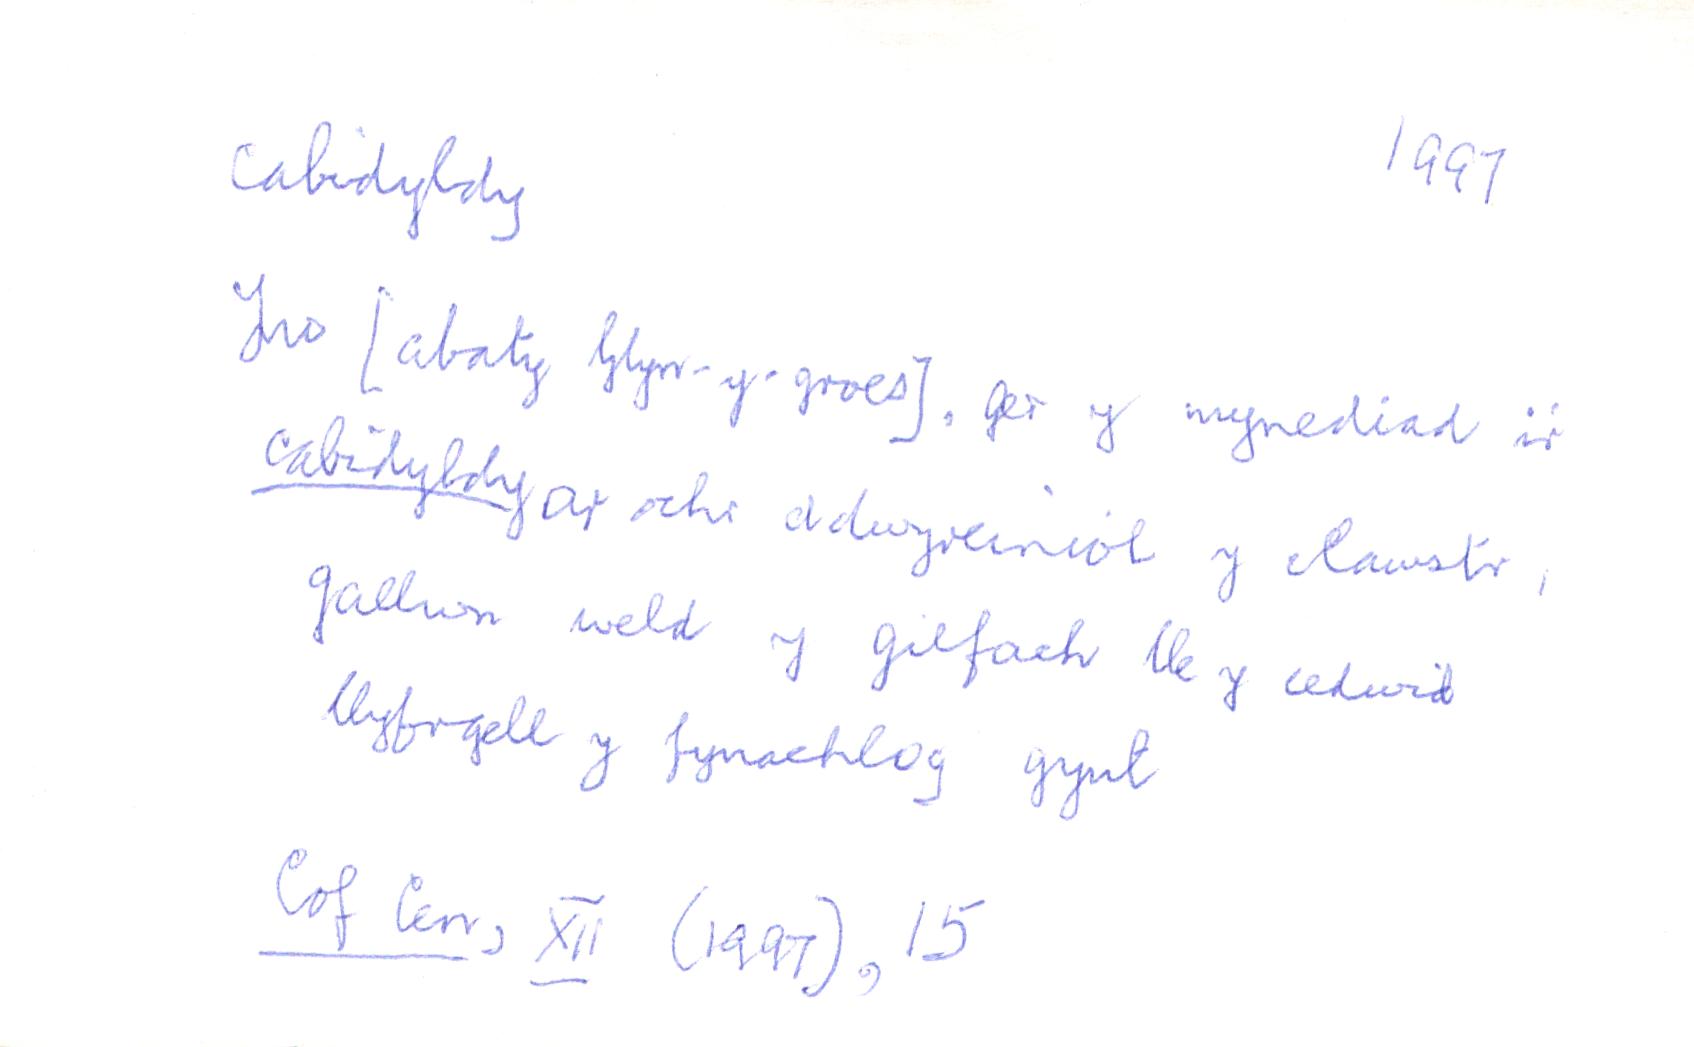 cabidyldy
1997
Yno [abaty Glyn-y-groes], ger y mynediad i'r
cabidyldy ar ochr ddwyreiniol y clawstr,
gallwn weld y gilfach lle y cedwid
llyfrgell y fynachlog gynt
Cof Cen, XII (1997), 15